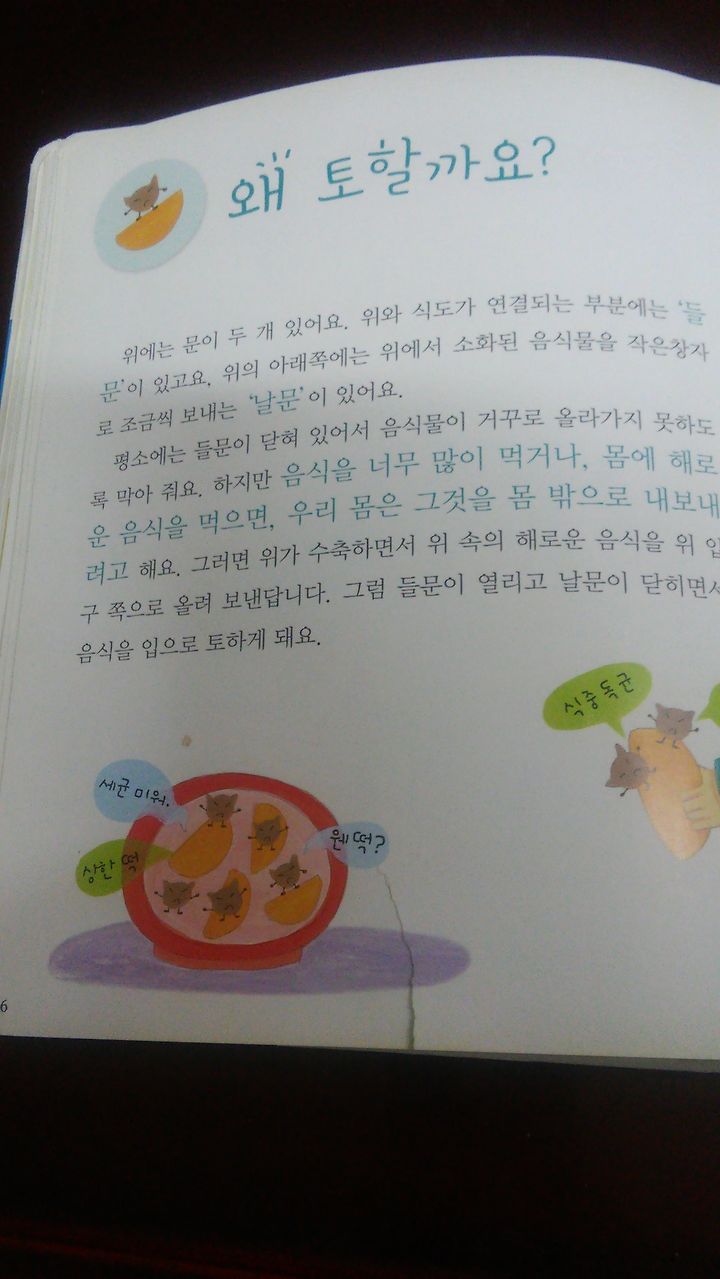 왜 토할까요?
위에는 문이 두 개 있어요. 위와 식도가 연결되는 부분에는 '들
문'이 있고요, 위의 아래쪽에는 위에서 소화된 음식물을 작은창자
로 조금씩 보내는 '날문'이 있어요.
평소에는 들문이 닫혀 있어서 음식물이 거꾸로 올라가지 못하도
록 막아 줘요. 하지만 음식을 너무 많이 먹거나, 몸에 해로
운 음식을 먹으면, 우리 몸은 그것을 몸 밖으로 내보내
려고 해요. 그러면 위가 수축하면서 위 속의 해로운 음식을 위 입
구 쪽으로 올려 보낸답니다. 그럼 들문이 열리고 날문이 닫히면서
음식을 입으로 토하게 돼요.
식중독균
세균 미워.
상한 떡
웬 떡?
6